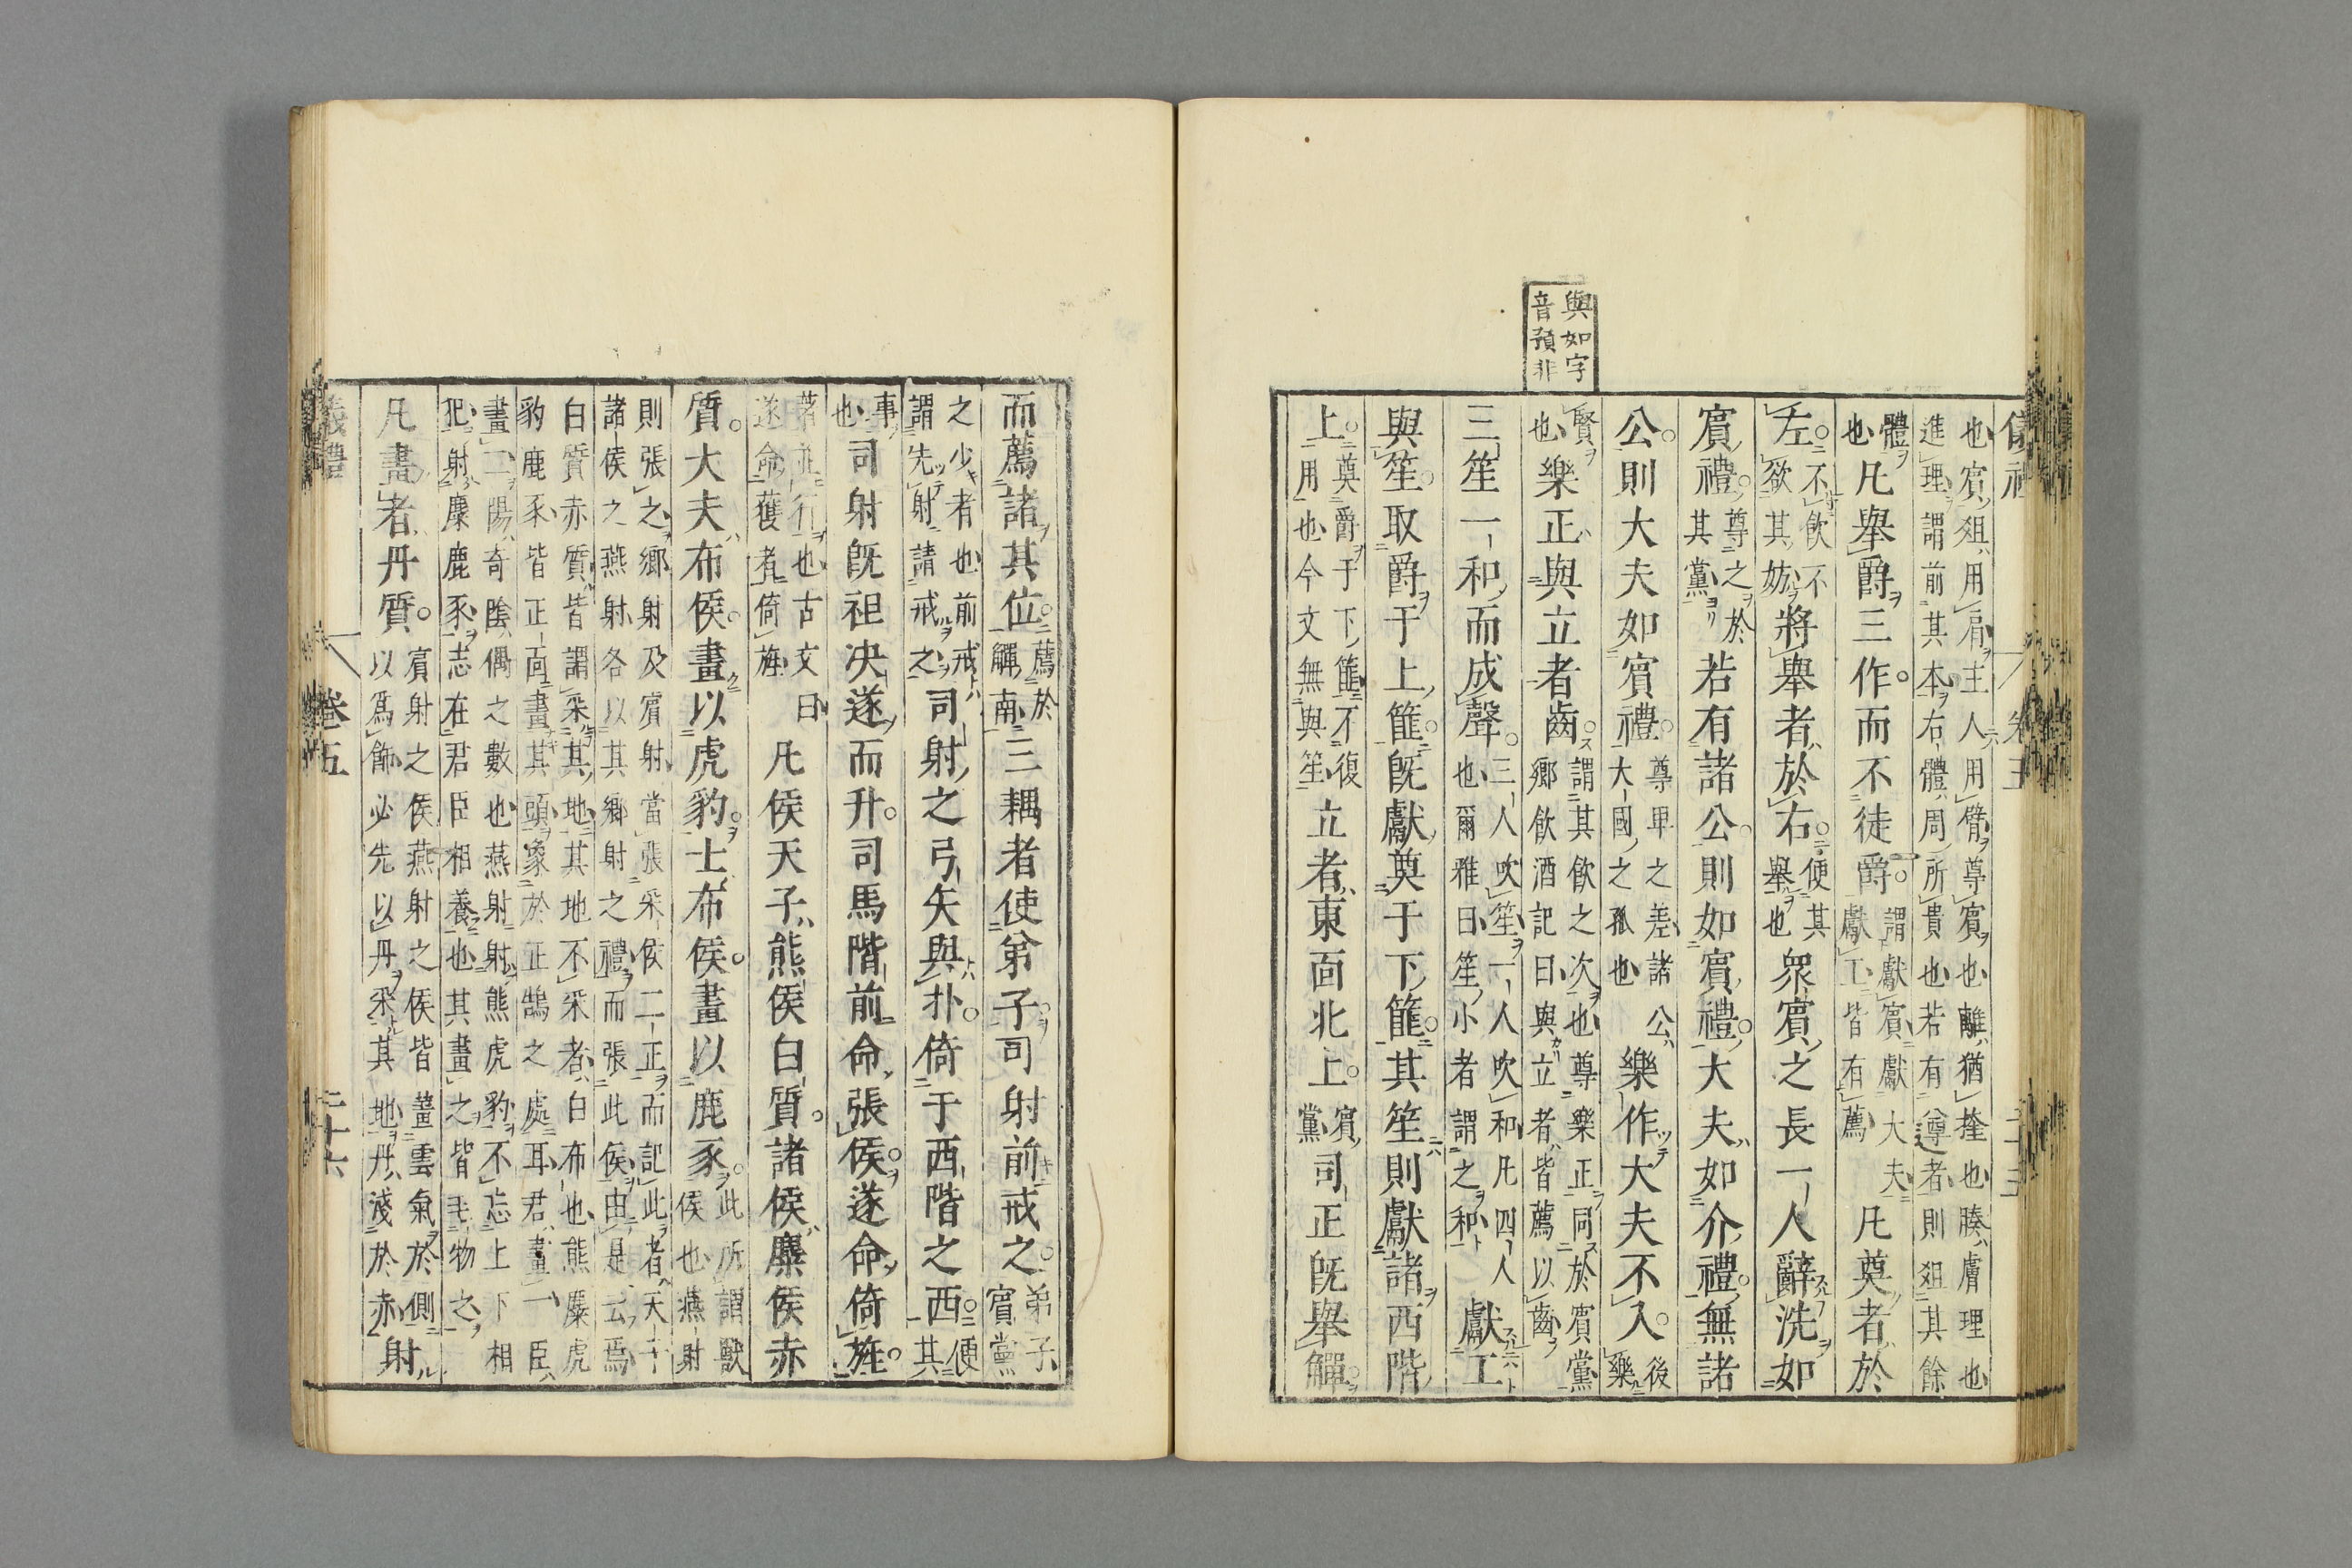 與如字
音預非
也賔俎用肩主人用臂尊賔也離猶捶也腠膚理也
進理謂前其本右體周所貴也若有遵者則俎其餘
體也凡舉爵三作而不徒爵謂獻賔獻大夫獻工皆有薦凡奠者於
左不飲不欲其妨將舉者於右便其舉也衆賔之長一人辭洗如
賔禮尊之於其黨若有諸公則如賔禮大夫如介禮無諸
公則大夫如賔禮尊卑之差諸公大國之孤也樂作大夫不入後樂
賢也樂正與立者齒謂其飲之次也尊樂正同於賔黨鄉飲酒記曰與立者皆薦以齒
三笙一和而成聲三人吹笙一人吹和凡四人也爾雅曰笙小者謂之和獻工
與笙取爵于上篚既獻奠于下篚其笙則獻諸西階
上奠爵于下篚不復用也今文無與笙立者東面北上賔黨司正既舉觶
而薦諸其位薦於觶南三耦者使弟子司射前戒之弟子賔黨
之少者也前戒謂先射請戒之司射之弓矢與扑倚于西階之西便其
事也司射既袒决遂而升司馬階前命張侯遂命倚旌
著並行也古文曰遂命獲者倚旌凡侯天子熊侯白質諸侯麋侯赤
質大夫布侯畫以虎豹士布侯畫以鹿豕此所謂獸侯也燕射
則張之鄉射及賔射當張采侯二正而記此者天子
諸侯之燕射各以其鄉射之禮而張此侯由是云焉
白質赤質皆謂采其地其地不采者白布也熊麋虎
豹鹿豕皆正面畫其頭象於正鵠之處耳君畫一臣
畫二陽奇陰偶之數也燕射射熊虎豹不忘上下相
犯射麋鹿豕志在君臣相養也其畫之皆毛物之
凡畫者丹質賔射之侯燕射之侯皆畫雲氣於側以爲飾必先以丹采其地丹淺於赤射
儀禮 卷五 二十六